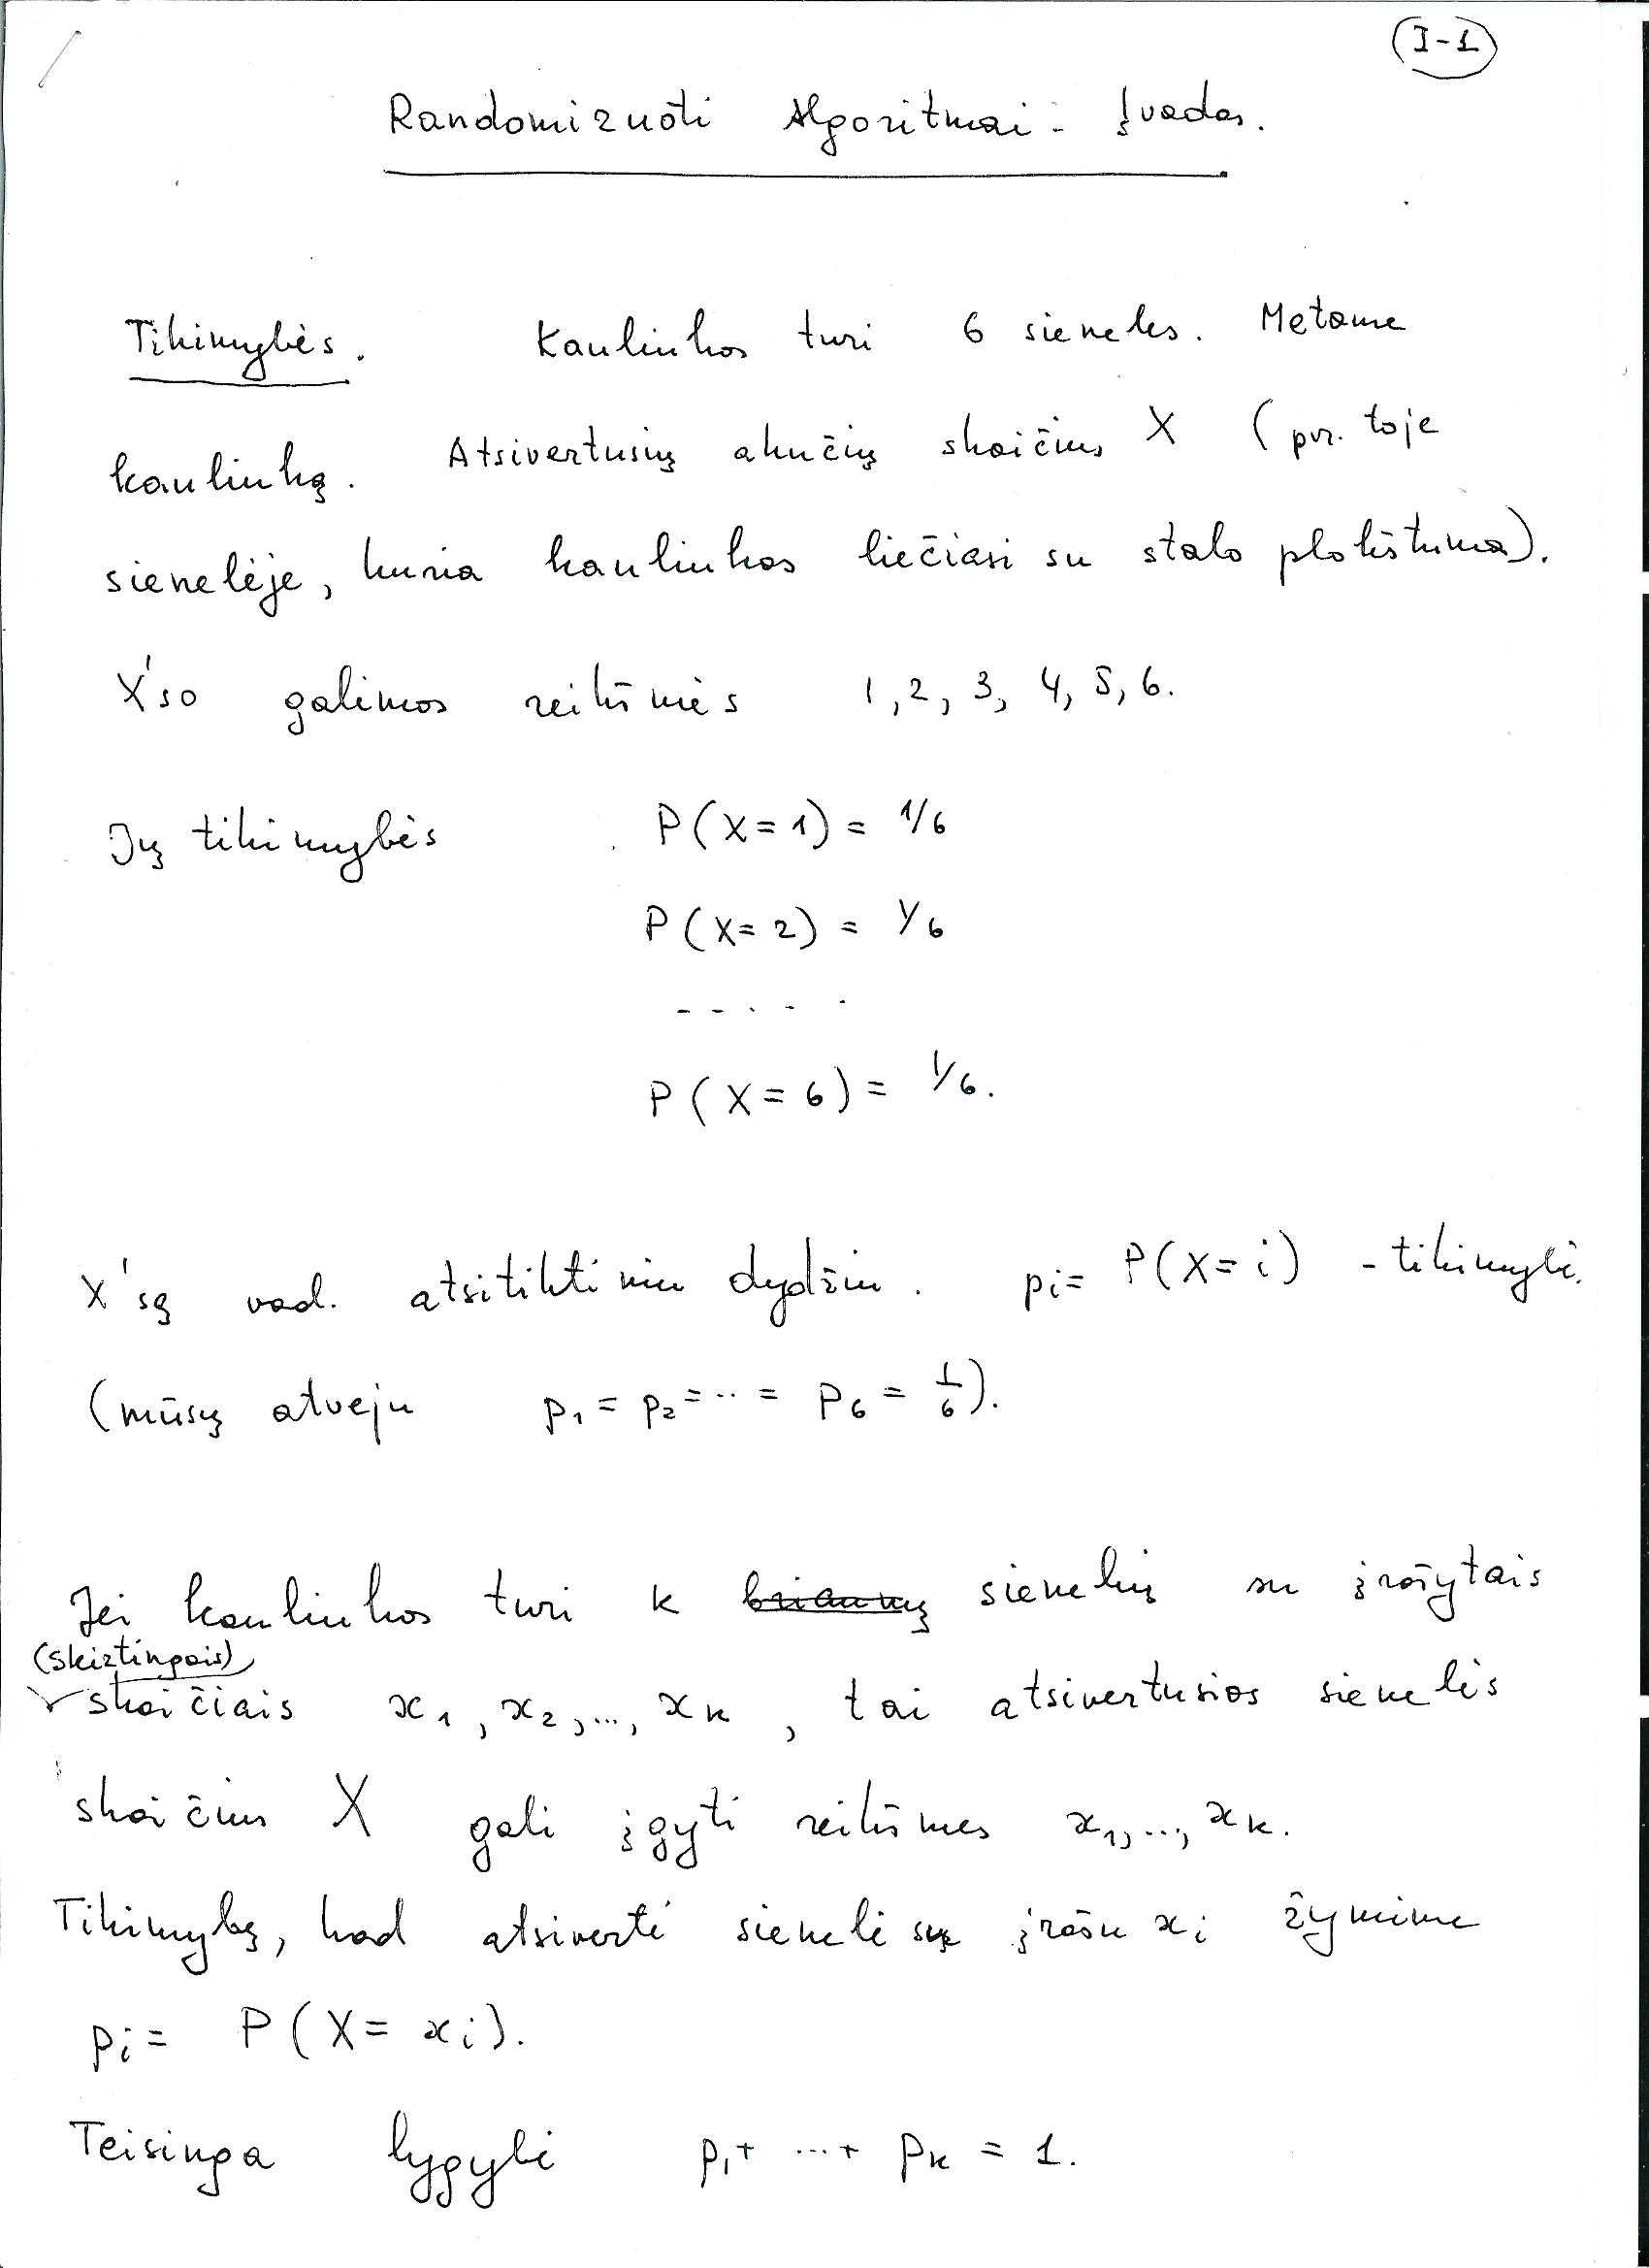 I-1
Randomizuoti Algoritmai - Įvadas.
Tikimybės. Kauliukas turi 6 sieneles. Metame
kauliuką. Atsivertusių akučių skaičius X (pvz. toje
sienelėje, kuria kauliukas liečiasi su stalo plokštuma).
X'so galimos reikšmės 1, 2, 3, 4, 5, 6.
Jų tikimybės P(X=1) = 1/6
P(X=2) = 1/6
- - . - .
P(X=6) = 1/6.
X'są vad. atsitiktiniu dydžiu. pi = P(X=i) - tikimybė.
(mūsų atveju p1 = p2 = ... = p6 = 1/6).
Jei kauliukas turi k briaunų sienelių su įrašytais
(skirtingais)
skaičiais x1, x2, ..., xk, tai atsivertusios sienelės
skaičius X gali įgyti reikšmes x1, ..., xk.
Tikimybę, kad atsivertė sienelė su įrašu xi žymime
pi = P(X = xi).
Teisinga lygybė p1 + ... + pk = 1.